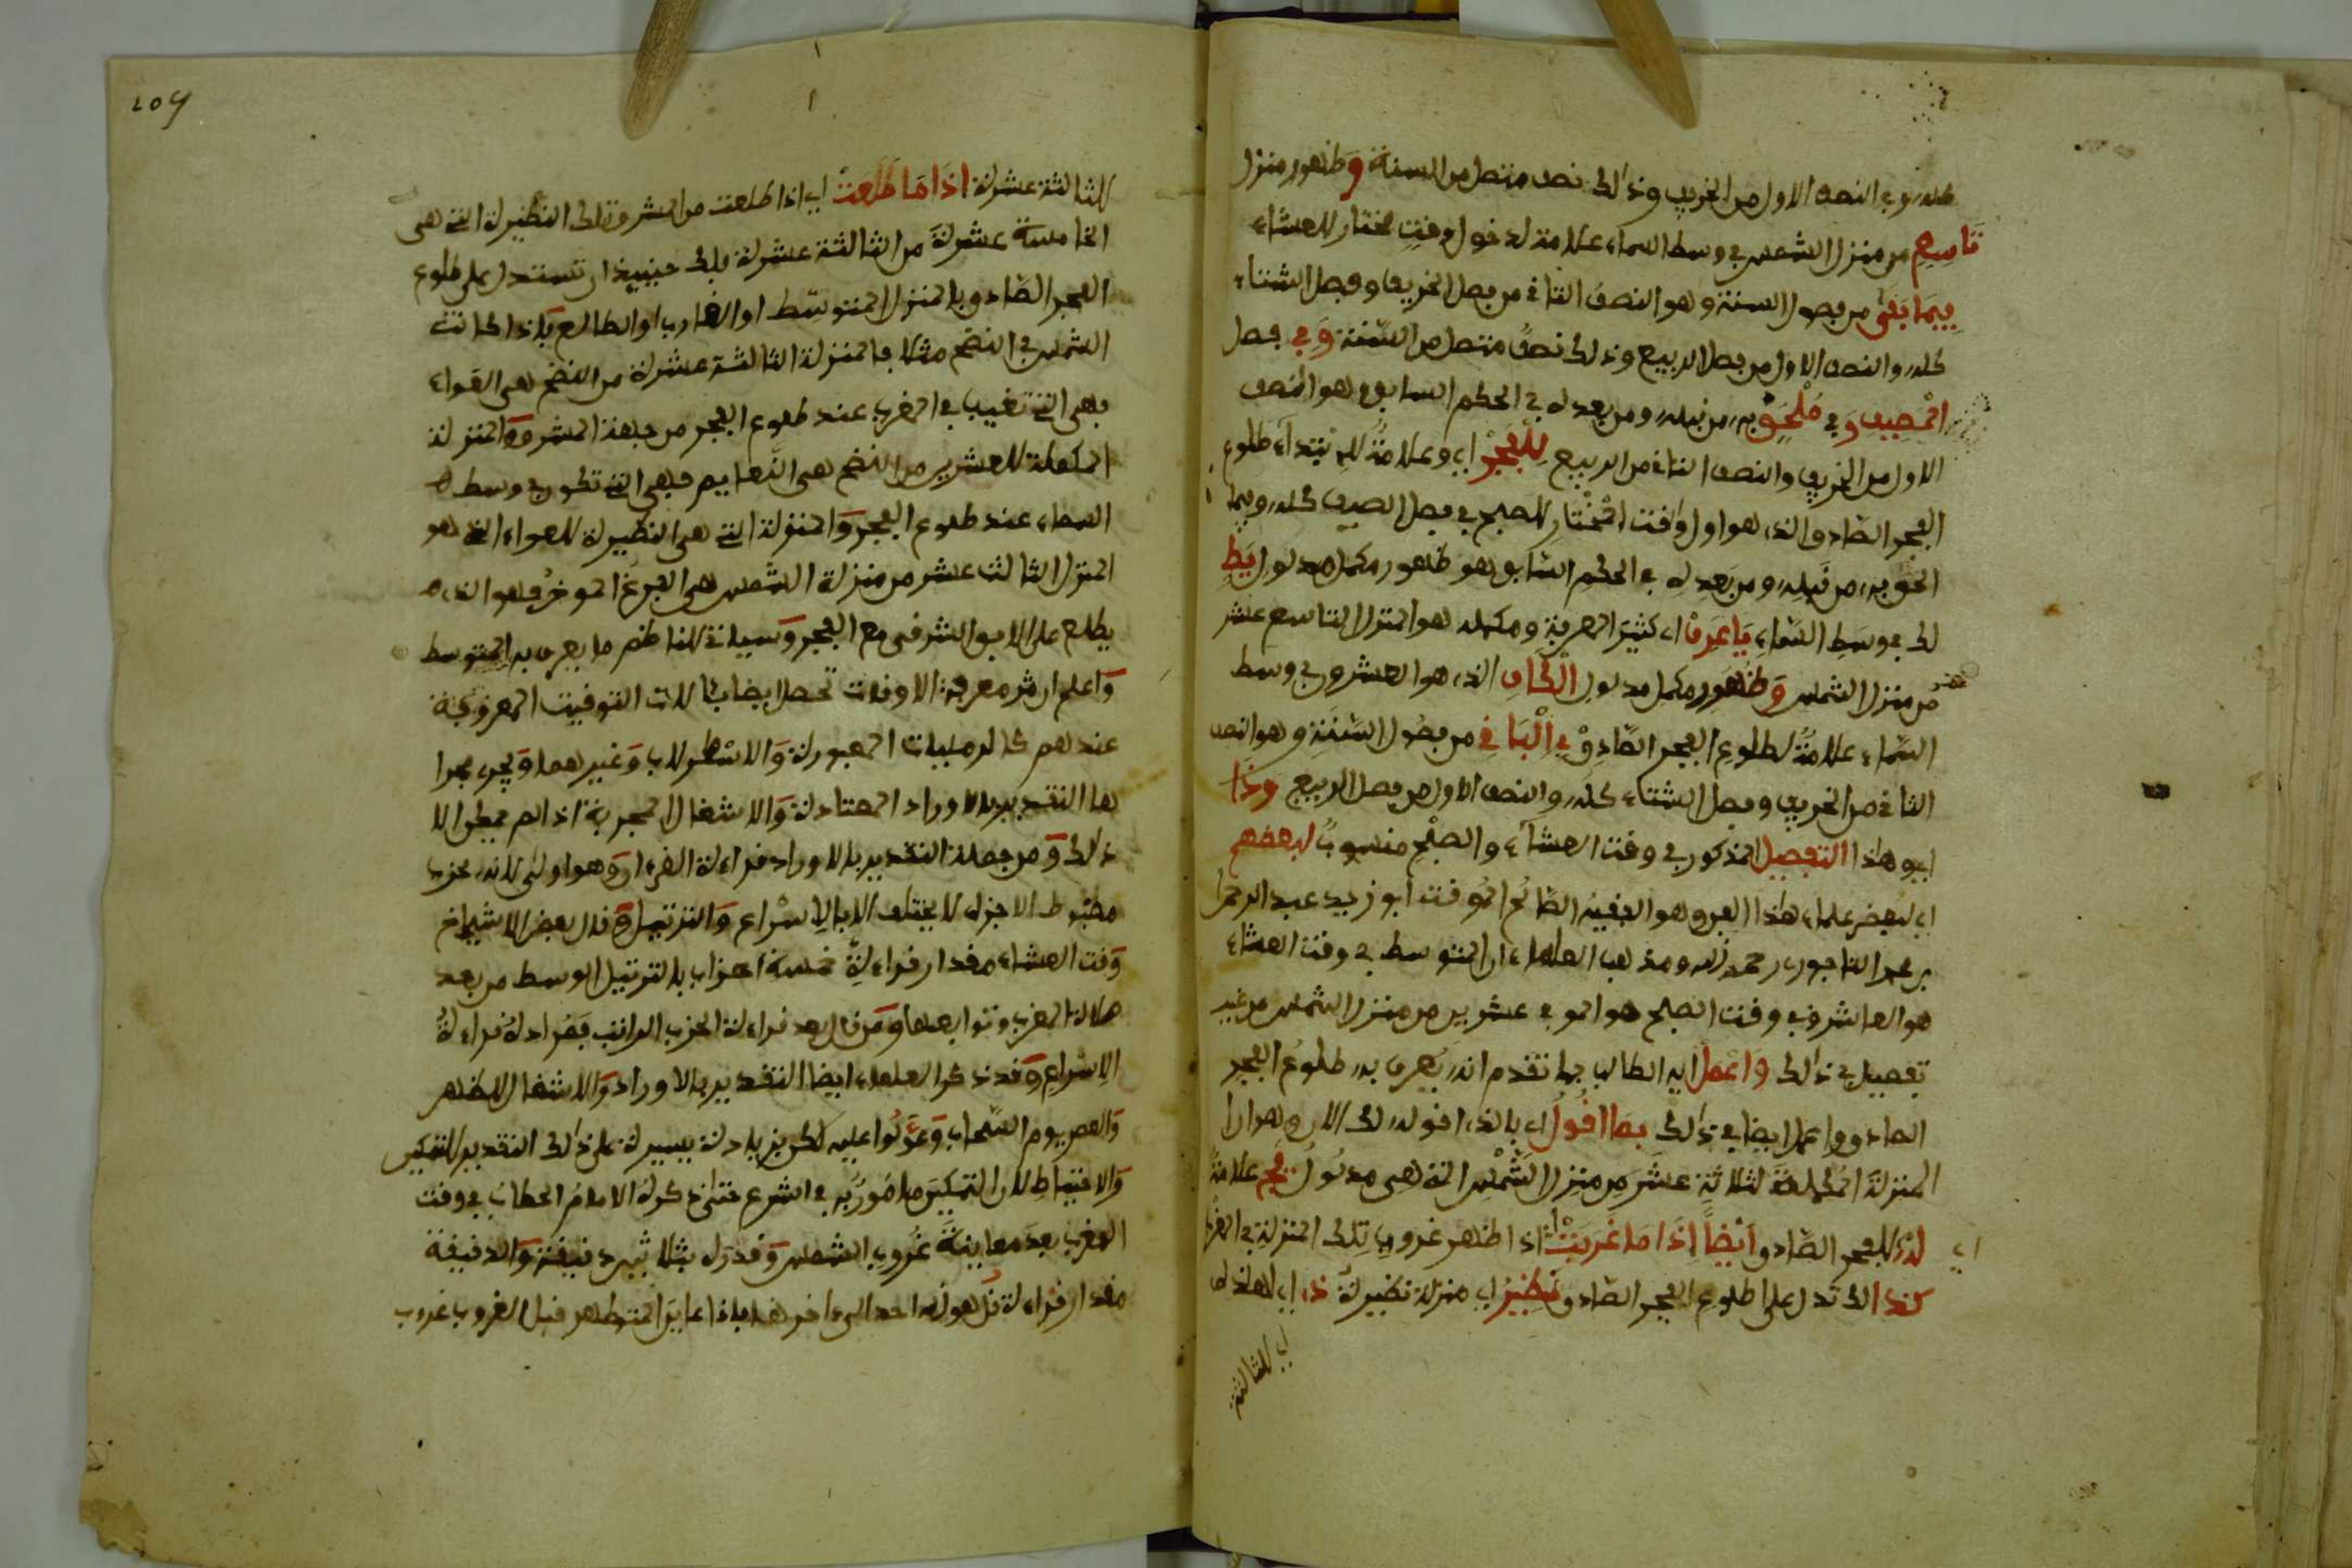 كله وفي النصف الاول من الخريف وذالك نصف متصل من السنة وظهور منزل
تاسع من منزل الشمس في وسط السماء علامة لدخول وقت مختار للعشاء
فيما بقى من فصول السنة وهو النصف الثاني من فصل الخريف وفصل الشتاء
كله والنصف الاول من فصل الربيع وذلك نصف متصل من السنة وفي فصل
المصيف وفي ملحق به من قبله ومن بعد له في الحكم السابق وهو النصف
الاول من الخريف والنصف الثاني من الربيع للفجر اي وعلامة لابتداء طلوع
الفجر الصادق الذي هو اول وقت المختار للصبح في فصل الصيف كله وفيما
الحق به من قبله ومن بعد له في الحكم السابق وهو ظهور مكمل مدلول يط
لك في وسط السماء يا عرف اي كثير المعرفة ومكمله هو المنزل التاسع عشر
من منزل الشمس وظهور مكمل مدلول الكاف الذي هو العشرون في وسط
السماء علامة لطلوع الفجر الصادق في الباقي من فصول السنة وهو النصف
الثاني من الخريف وفصل الشتاء كله والنصف الاول من فصل الربيع وذا
اي وهاذا التفصيل المذكور في وقت العشاء والصبح منسوب لبعضهم
اي لبعض علماء هاذا الفن وهو الفقيه الصالح الموقت ابو زيد عبد الرحمن
بن عمر التاجوري رحمه الله ومذهب العلماء ان المتوسط في وقت العشاء
هو العاشر وفي وقت الصبح هو الموفي عشرين من منزل الشمس من غير
تفصيل في ذالك واعمل ايه الطالب بما تقدم انه يعرف به طلوع الفجر
الصادق واعمل ايضا في ذالك بما اقول اي بالذي اقوله لك الان وهو ان
المنزلة المكملة لثلاثة عشر من منزل الشمس التي هي مدلول يج علامة
اي لذا للفجر الصادق ايضا اذا ما غربت اي اذا ظهر غروب تلك المنزلة في المغرب
كذا لك تدل على طلوع الفجر الصادق نظير اي منزلة نظيرة ذي اي لهذه
اي للثالثة
209
للثالثة عشرة اذا ما طلعت اي اذا طلعت من المشرق تلك النظيرة التي هي
الخامسة عشرة من الثالثة عشرة فلك حينيذ ان تستدل على طلوع
الفجر الصادق بالمنزل المتوسط او الغارب او الطالع فاذا كانت
الشمس في النضح مثلا فالمنزلة الثالثة عشرة من النضح هي العواء
فهي التي تغيب في المغرب عند طلوع الفجر من جهة المشرق والمنزلة
المكملة للعشرين من النضح هي النعايم فهي التي تكون في وسط
السماء عند طلوع الفجر والمنزلة التي هي النظيرة للعواء التي هو
المنزل الثالث عشر من منزلة الشمس هي الفرغ الموخر فهو الذي
يطلع على الافق الشرقي مع الفجر وسياتي للناظم ما يعرف به المتوسط
واعلم ان معرفة الاوقات تحصل ايضا بالات التوقيت المعروفة
عندهم كالرمليات المعبورة والاسطرلاب وغيرهما ويجري مجرا
ها التقدير بالاوراد المعتادة والاشغال المجربة اذا لم يمكن الا
ذالك ومن جملة التقدير بالاوراد قراءة القرءان وهو اولى لانه محزب
مضبوط الاجزاء لا يختلف الا بالاسراع والترتيل وقال بعض الاشياخ
وقت العشاء مقدار قراءة خمسة احزاب بالترتيل الوسط من بعد
صلاة المغرب وتوابعها ومن قال بعد قراءة الحزب الراتب فمراده قراءة
الاسراع وقد ذكر العلماء ايضا التقدير بالاوراد والاشغال للظهر
والعصر يوم السحاب وعولوا عليه لكن بزيادة يسيرة على ذالك التقدير للتمكين
والاحتياط لان التمكين مامور به في الشرع حتى ذكره الامام الحطاب في وقت
المغرب بعد معاينة غروب الشمس وقدره بثلاثين دقيقة والدقيقة
مقدار قراءة قل هو الله احد الى ءاخرها فاذا عاين المتطهر قبل الغروب غروب